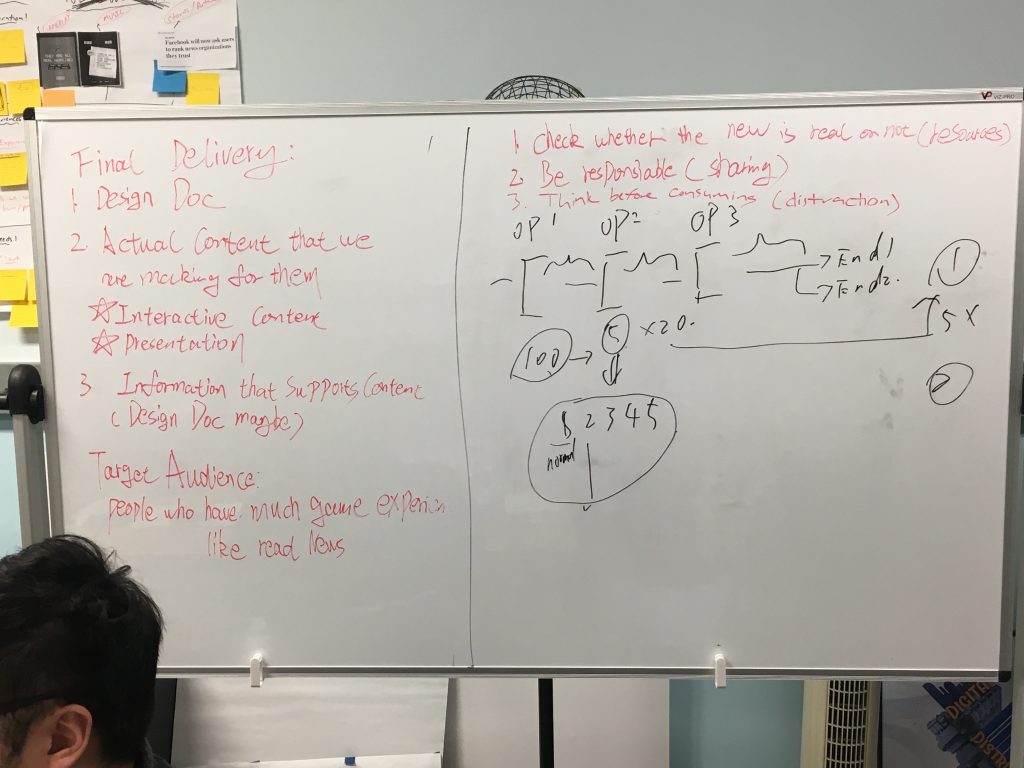 Facebook will now ask users
to rank news organizations
they trust
VIZ-PRO
Final Delivery:
1. Design Doc
2. Actual Content that we
are making for them
☆ Interactive Content
☆ Presentation
3. Information that supports Content
(Design Doc maybe)
Target Audience:
people who have much game experien
like read News
1. Check whether the new is real or not (resources)
2. Be responsiable (sharing)
3. Think before consuming (distraction)
OP 1 OP 2 OP 3
End 1
End 2.
1
100 → 5 x20.
5 X
2
2 3 4 5
normal
DIGITAL
DISTR